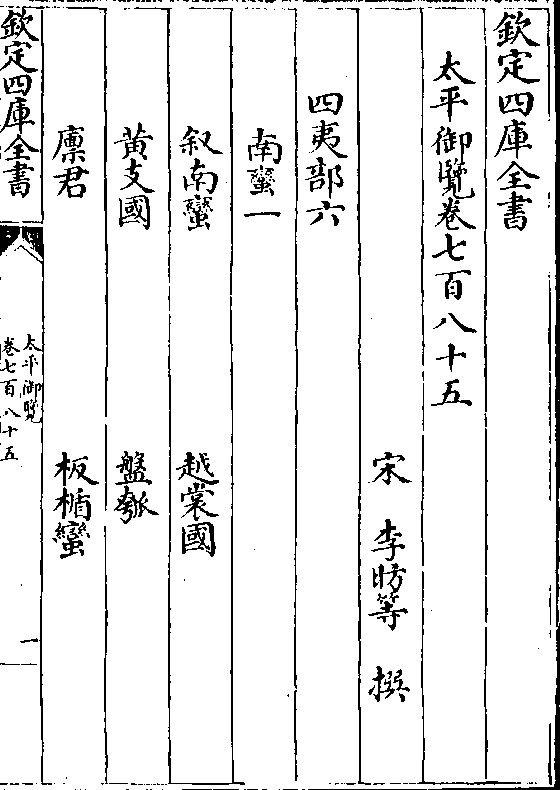 欽定四庫全書
太平御覽卷七百八十五
宋 李昉等 撰
四夷部六
南蠻一
叙南蠻 越裳國
黃支國 盤瓠
廪君 板楯蠻
欽定四庫全書
太平御覽
卷七百八十五
一